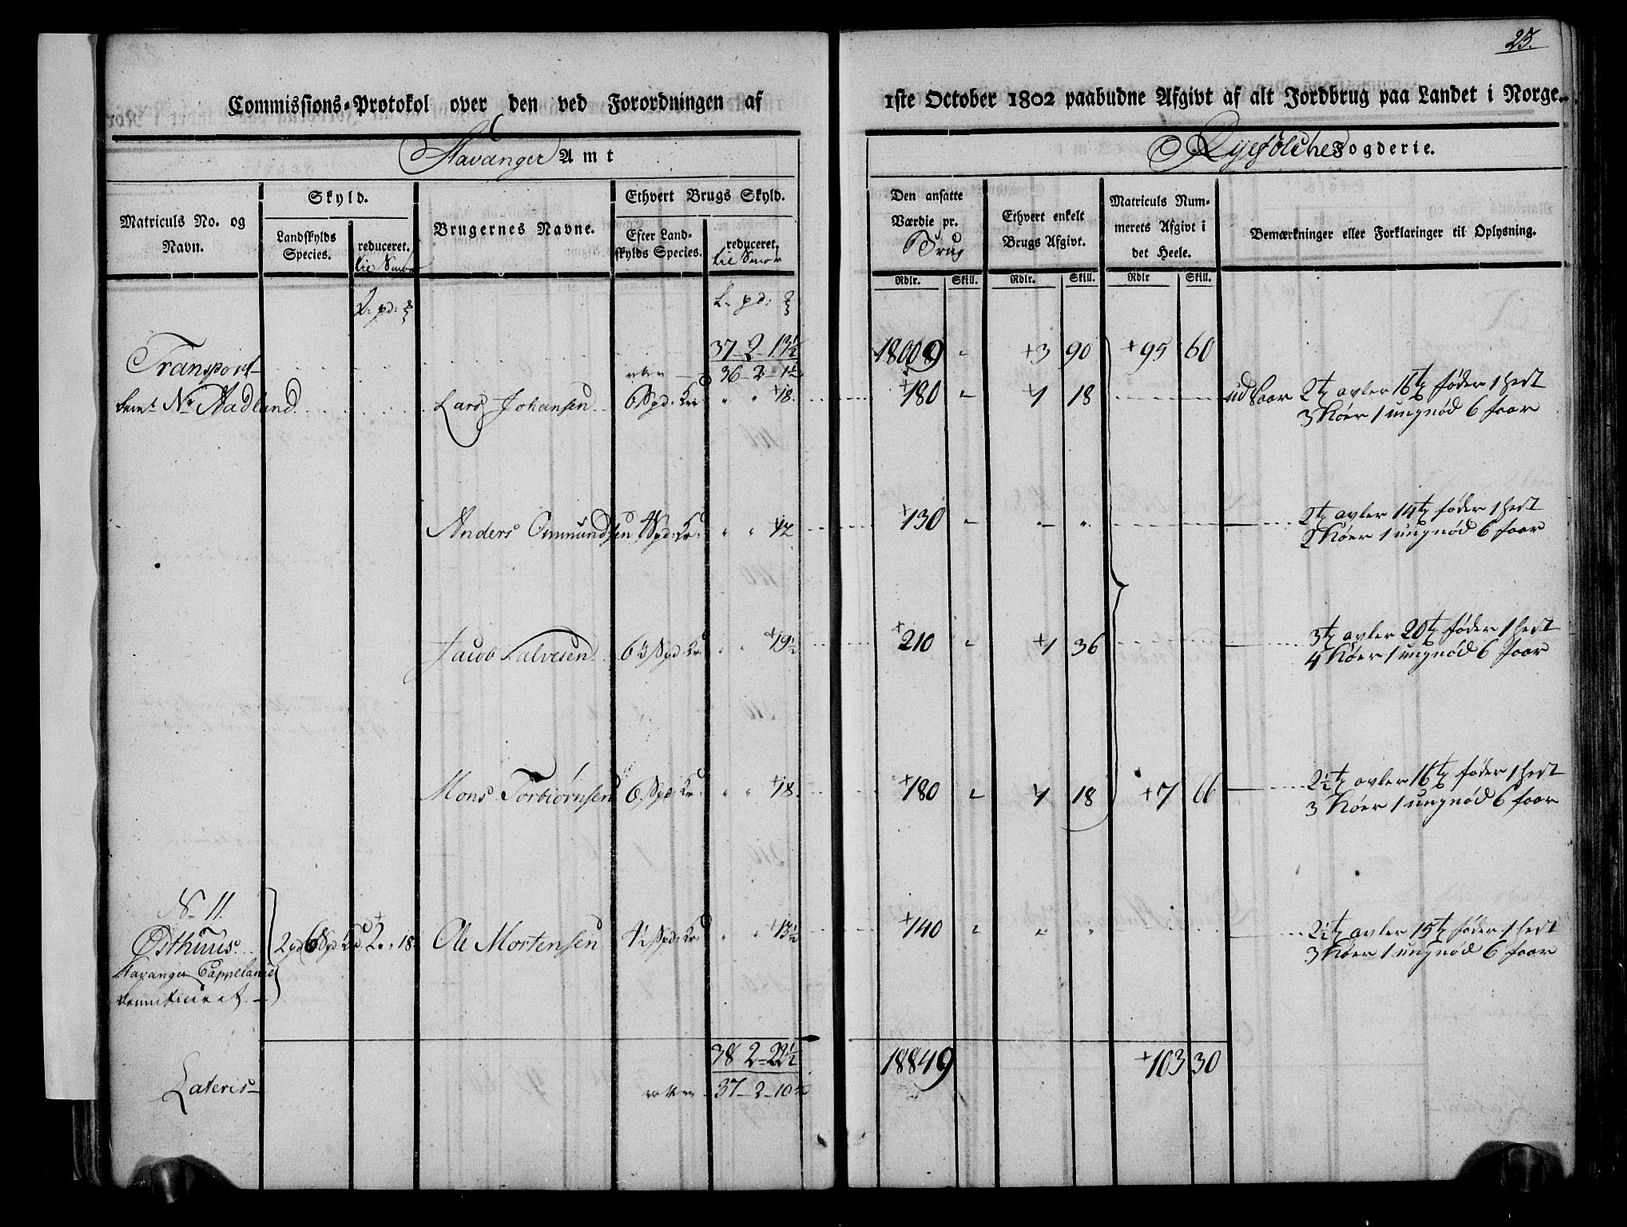 25.
Commissions-Protokol over den ved Forordningen af 1ste October 1802 paabudne Afgivt af alt Jordbrug paa Landet i Norge.
Stavanger Amt
Ryefølches Fogderie.
Matriculs No. og Navn.
Skyld.
Landskylds Species.
reduceret. til Smør
Brugernes Navne.
Ethvert Brugs Skyld.
Efter Landskylds Species.
reduceret. til Smør
Den ansatte Værdie pr. Brug
Rdlr. Skill.
Ethvert enkelt Brugs Afgivt.
Rdlr. Skill.
Matriculs Nummerets Afgivt i det Heele.
Rdlr Skill.
Bemærkninger eller Forklaringer til Oplysning.
Transport 37 - 2 - 13½ 18009 " +3 90 +95 60
36 - 2 - 1½
No Aadland Lars Johansen 6 Spd: " " +18 +180 " +1 18 udsaar 2½ t avler 16 t føder 1 hest
3 Køer 1 ungnød 6 faar
Anders Omundsen 4 Spd: " " +12 +130 " " " 2 t avler 14 t føder 1 hest
2 Køer 1 ungnød 6 faar
Jacob Salvesen 6½ Spd " " +19½ +210 " +1 36 3 t avler 20 t føder 1 hest
4 Køer 1 ungnød 6 faar
Mons Torbiørnsen 6 Spd: " " +18 +180 " +1 18 +7 66 2½ t avler 16 t føder 1 hest
3 Køer 1 ungnød 6 faar
No 11.
Østhuus 2 pd 6 Spd 2 " 18 Ole Mortensen 4½ Spd " " +13½ +140 " " " 2½ t avler 15 t føder 1 hest
3 Køer 1 ungnød 6 faar
Stavanger Cappelanie
beneficeret
38 2 - 22½ 18849 +103 30
Lateris 37 - 2 - 10½